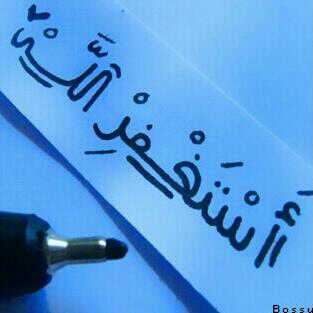 أَسْتَغْفِرُ اللَّهَ
Bossu